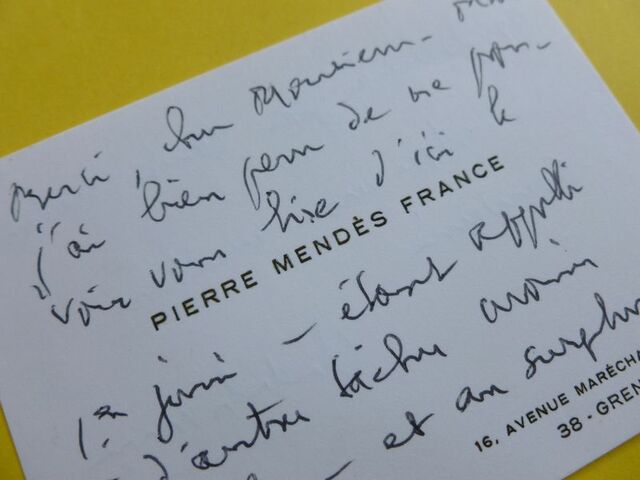 Merci, cher Monsieur - mais
j'ai bien peur de ne pou-
voir vous lire d'ici le
PIERRE MENDÈS FRANCE
1er juin - étant appelé
d'autres tâches
- et au surplus
16, AVENUE MARÉCHA
38 - GREN